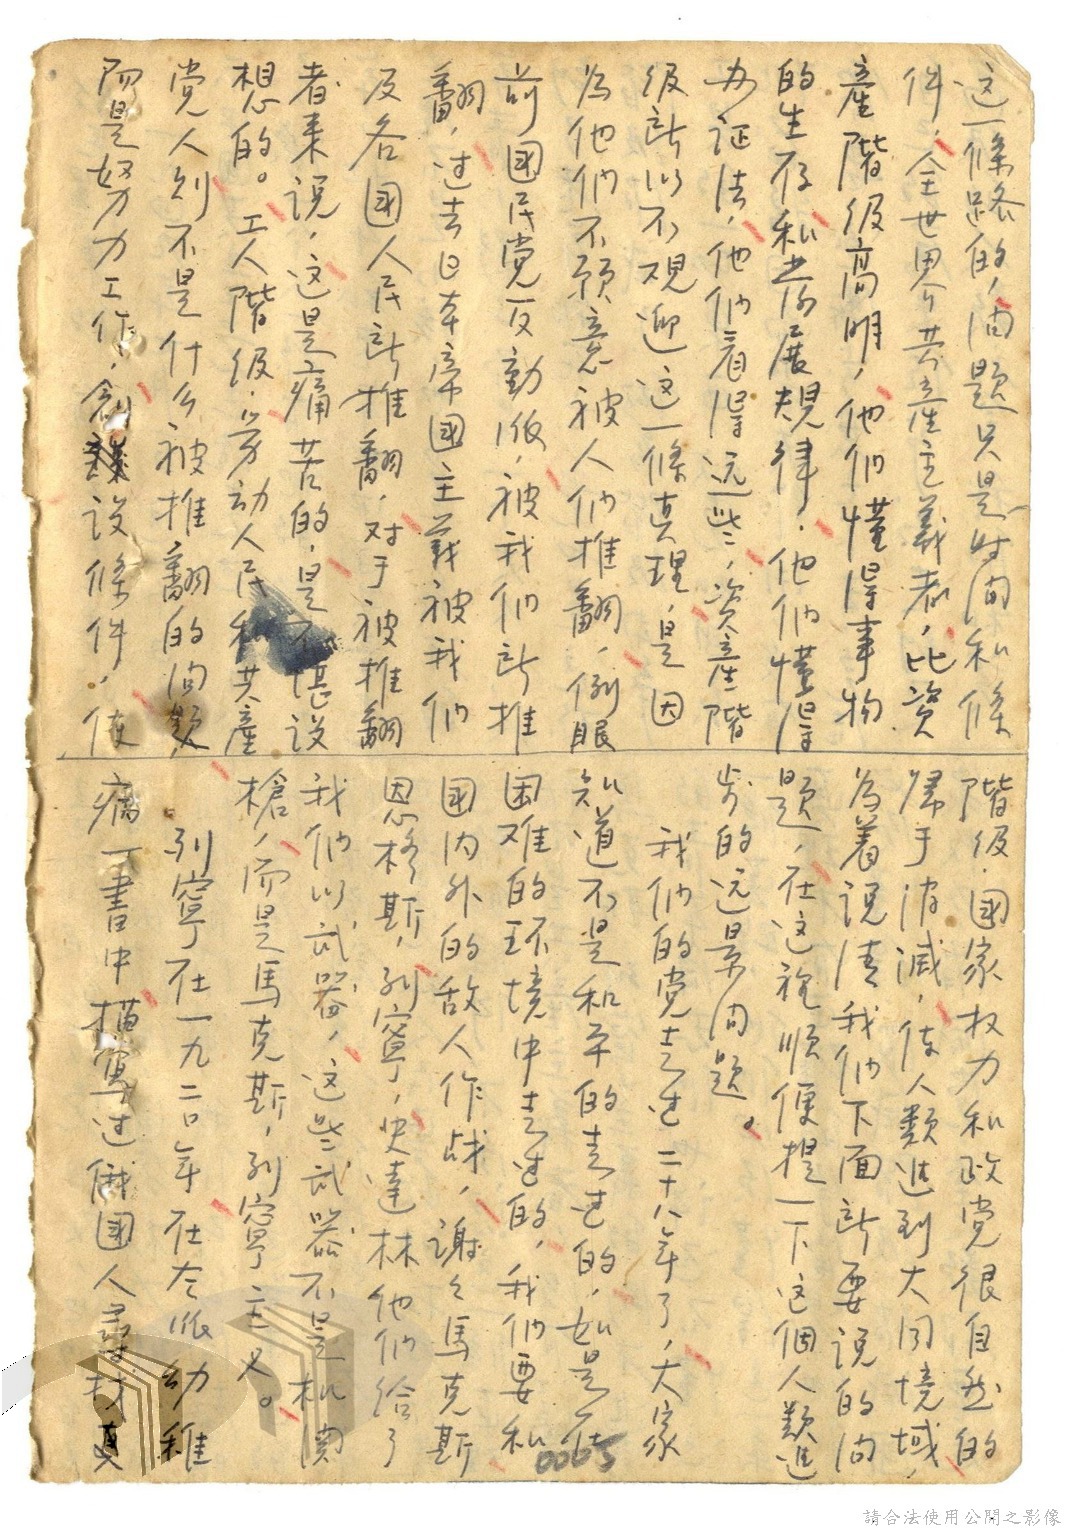 这一條路的，问題只是时间和條
件，全世界共産主義者，比资
産階级高明，他们懂得事物
的生存和发展規律．他们懂得
办证法，他们看得远些，资産階
级所以不观迎这一條真理，是因
为他们不願意被人们推翻，例眼
前國民党反動派，被我们所推
翻，过去日本帝國主義被我们
及各國人民所推翻，对于被推翻
者来说，这是痛苦的，是不堪设
想的。工人階级，劳动人民和共産
党人则不是什么被推翻的问题
而是努力工作，創设條件，使
階级．國家权力和政党很自然的
歸于消滅，使人類進到大同境域，
为着说清我们下面所要说的问
题，在这裡顺便提一下这個人類進
步的远景问题。
我们的党走过二十八年了，大家
知道不是和平的走过的，如是在
困难的环境中走过的，我们要和
國内外的敌人作战，谢々馬克斯
恩格斯，列寧，史達林他们给了
我们以武器，这些武器不是机関
槍，而是馬克斯，列寧主义。
列寧在一九二〇年在左派幼稚
病一書中描寫过俄國人尋找真
0065
請合法使用公開之影像